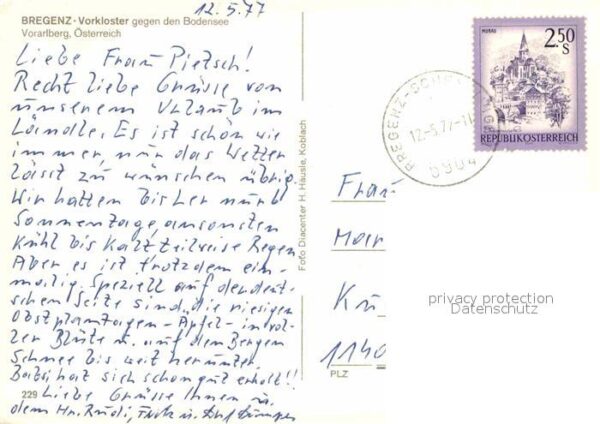 12.5.77
BREGENZ - Vorkloster gegen den Bodensee
Vorarlberg, Österreich
Liebe Frau Pietsch!
Recht liebe Grüsse von
unserem Urlaub im
Ländle. Es ist schön wie
immer, nur das Wetter
lässt zu wünschen übrig.
Wir hatten bisher nur 6
Sonnentage, ansonsten
Kühl bis Kalt teilweise Regen
Aber es ist trotzdem ein-
malig. Speziell auf der deut-
schen Seite sind die riesigen
Obstplantagen - Äpfel - in vol-
ler Blüte u. auf den Bergen
Schnee bis weit herunter.
hat sich schon gut erholt!!
229 Liebe Grüsse Ihnen u.
dem Hr. Rudi, u.
Foto Diacenter H. Häusle, Koblach
MURAU
2.50
S
REPUBLIK ÖSTERREICH
BREGENZ
12.-5.77
6904
Frau
Mar
Ku
1140
PLZ
privacy protection
Datenschutz